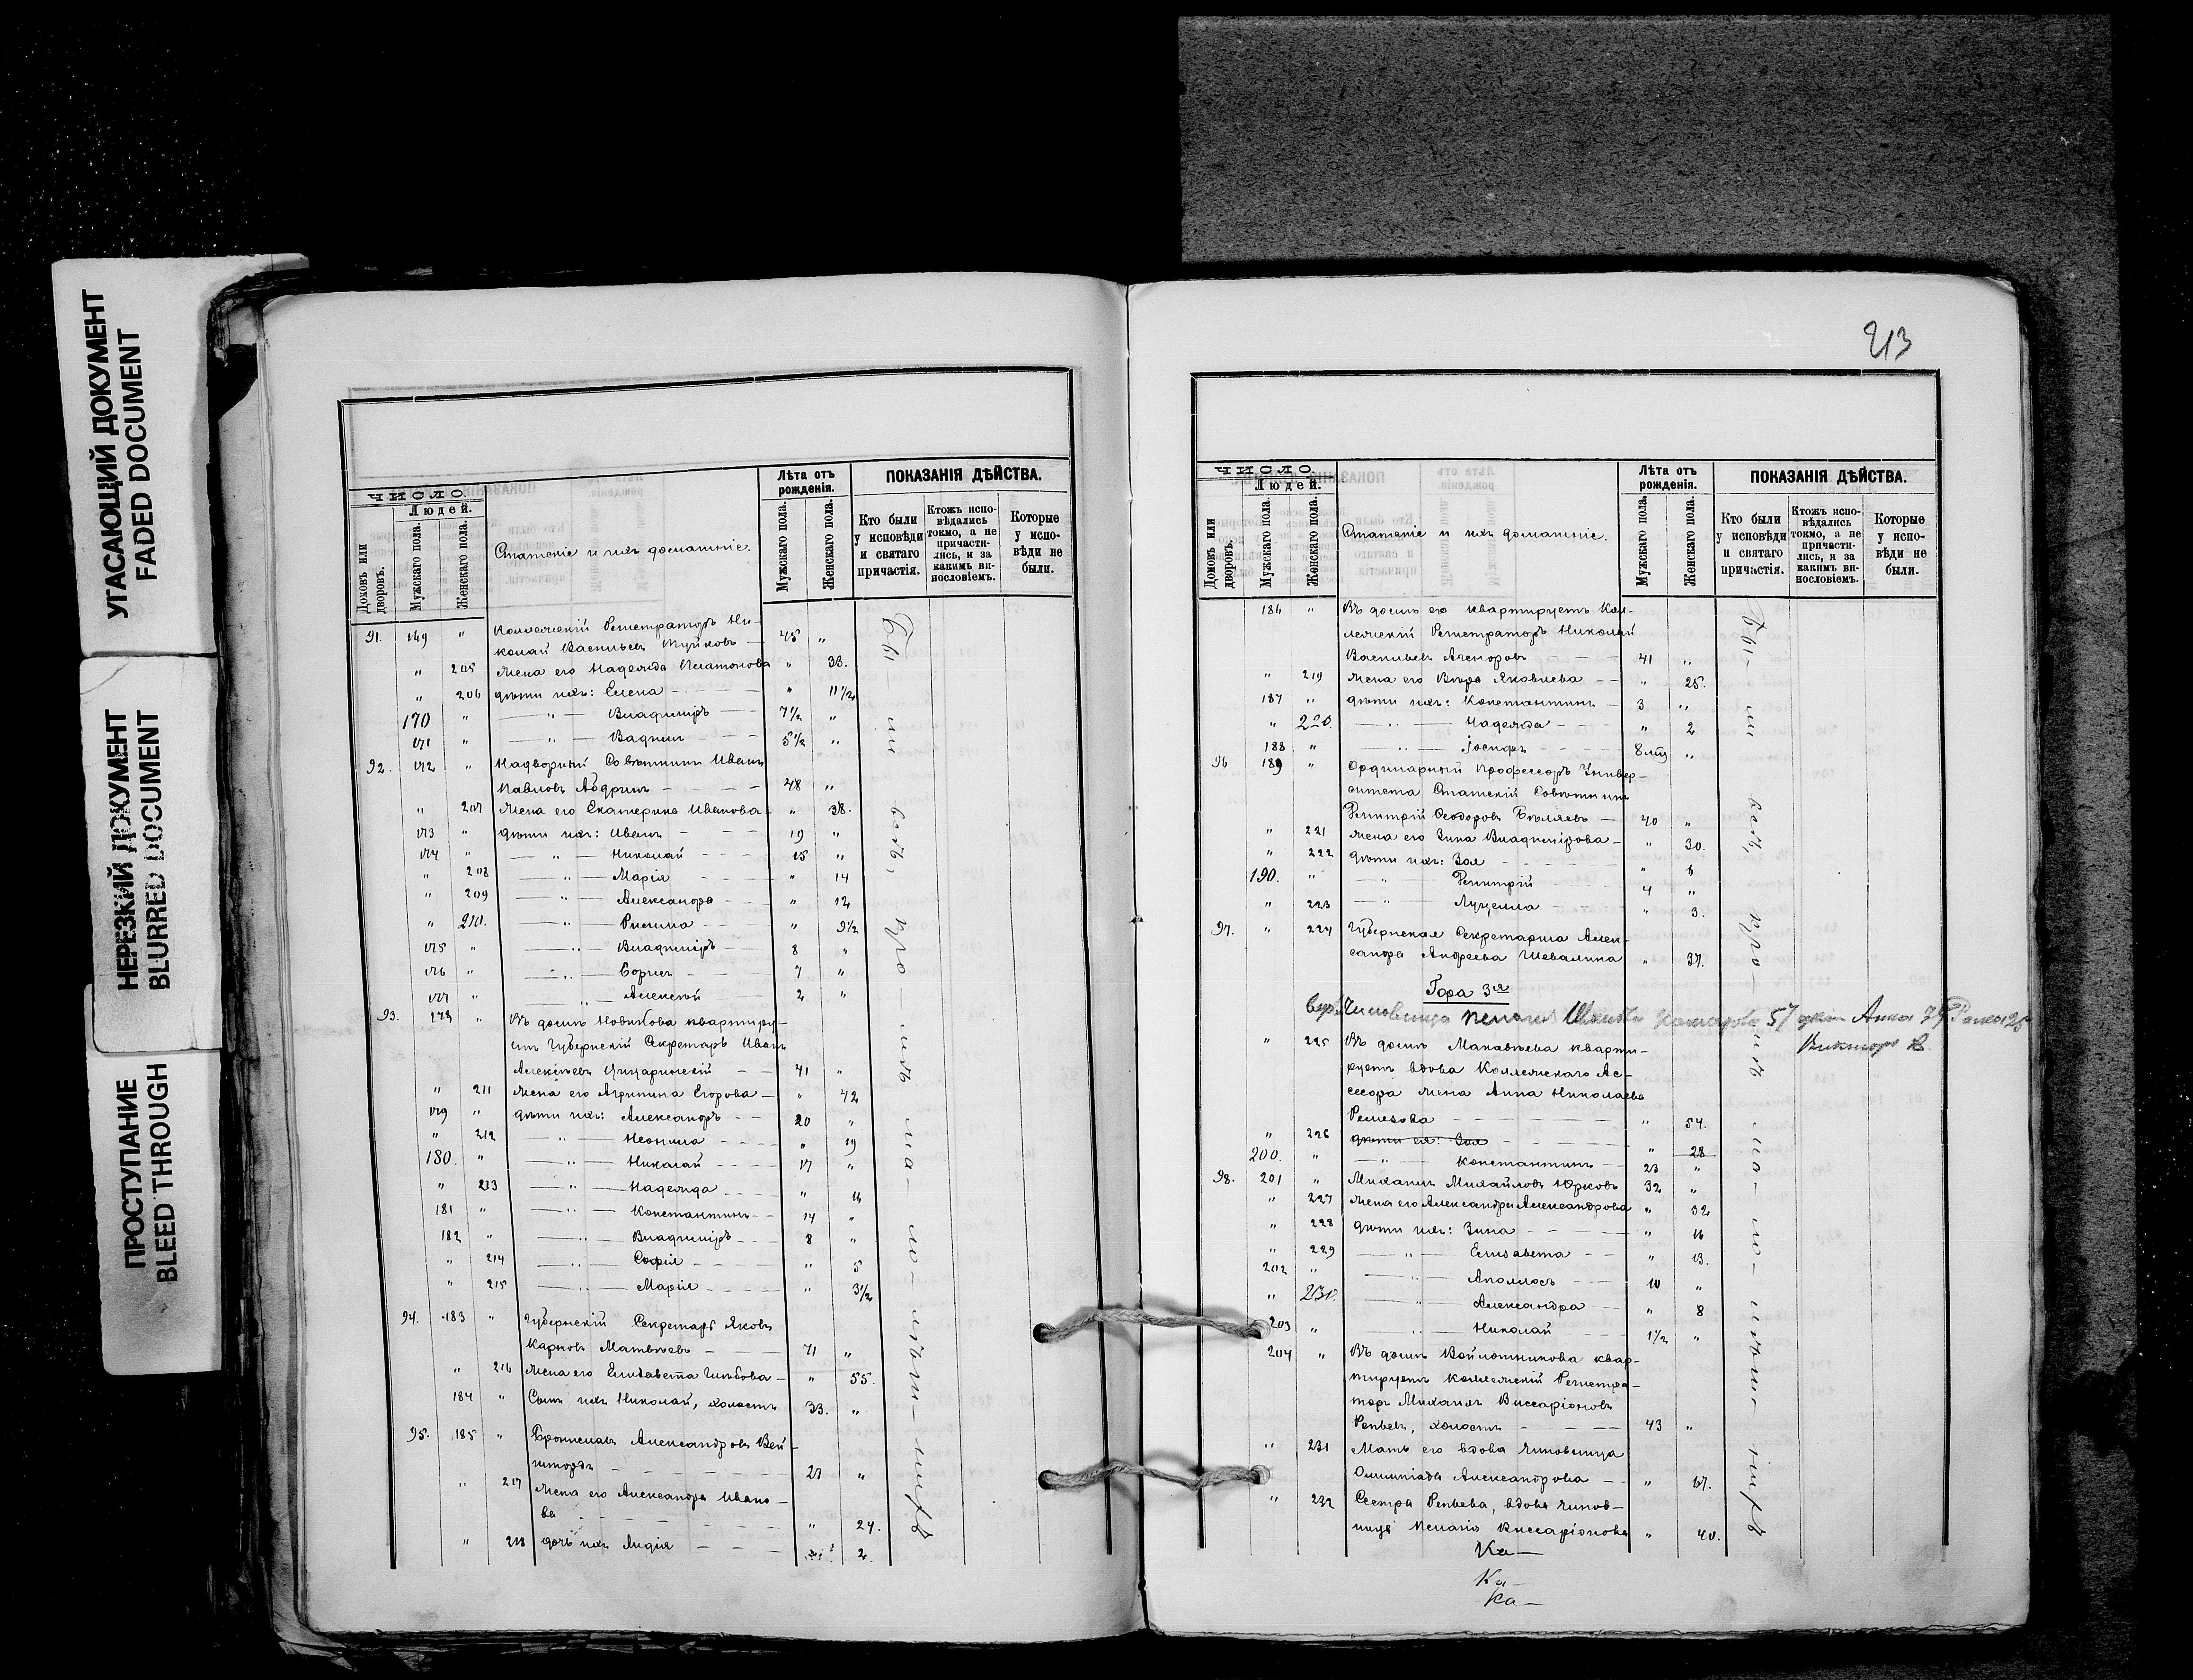 УГАСАЮЩИЙ ДОКУМЕНТ
FADED DOCUMENT
НЕРЕЗКИЙ ДОКУМЕНТ
BLURRED DOCUMENT
ПРОСТУПАНИЕ
BLEED THROUGH
ЧИСЛО.
Людей.
Домовъ или дворовъ.
Мужскаго пола.
Женскаго пола.
Статскіе и ихъ домашніе.
Лѣта отъ рожденія.
Мужскаго пола.
Женскаго пола.
ПОКАЗАНІЯ ДѢЙСТВА.
Кто были у исповѣди и святаго причастія.
Ктожъ исповѣдались токмо, а не причастились, и за какимъ винословіемъ.
Которые у исповѣди не были.
91. 169 " Коллежскій Регистраторъ Ни-
колай Васильевъ 45 "
" 205 Жена его Надежда Платонова " 33.
" 206 дѣти ихъ: Елена " 11 1/2
170 " — " — Владиміръ 7 1/2 "
171 " — " — Вадимъ 5 1/2 "
92. 172 " Надворный Совѣтникъ Иванъ
Павловъ 48 "
" 207 Жена его Екатерина Иванова " 38.
173 " дѣти ихъ: Иванъ 19 "
174 " — " — Николай 15 "
" 208 — " — Марія " 14
" 209 — " — Александра " 12
" 210. — " — Римма " 9 1/2
175 " — " — Владиміръ 8 "
176 " — " — Борисъ 7 "
177 " — " — Алексѣй 2 "
93. 178 " Въ домѣ Новикова квартиру-
етъ Губернскій Секретарь Иванъ
Алексѣевъ 41 "
" 211 Жена его Агрипина Егорова " 42
179 " дѣти ихъ: Александръ 20 "
" 212 — " — Неонила " 19
180. " — " — Николай 17 "
" 213 — " — Надежда " 16
181 " — " — Константинъ 14 "
182 " — " — Владиміръ 8 "
" 214 — " — Софія " 5
" 215 — " — Марія " 3 1/2
94. 183 " Губернскій Секретарь Яковъ
Карповъ Матвѣевъ 71 "
" 216 Жена его Елизавета Глѣбова " 55.
184 " Сынъ ихъ Николай, холостъ 33. "
95. 185 " Брониславъ Александровъ Вей-
27 "
" 217 Жена его Александра Ивано-
ва " 24.
" 218 дочь ихъ Лидія " 2
Бы — ли
213
ЧИСЛО.
Людей.
Домовъ или дворовъ.
Мужскаго пола.
Женскаго пола.
Статскіе и ихъ домашніе.
Лѣта отъ рожденія.
Мужскаго пола.
Женскаго пола.
ПОКАЗАНІЯ ДѢЙСТВА.
Кто были у исповѣди и святаго причастія.
Ктожъ исповѣдались токмо, а не причастились, и за какимъ винословіемъ.
Которые у исповѣди не были.
186 " Въ домѣ его квартируетъ Кол-
лежскій Регистраторъ Николай
Васильевъ 41 "
" 219 Жена его Вѣра Яковлева " 25.
187 " дѣти ихъ: Константинъ 3 "
" 220 — " — Надежда " 2
188 " — " — Іосифъ "
96 189 " Ординарный Профессоръ Универ-
ситета Статскій Совѣтникъ
Дмитрій Ѳеодоровъ Бѣляевъ 40 "
" 221 Жена его Зина Владимірова " 30.
" 222 дѣти ихъ: Зоя " 6
190. " — " — Дмитрій 4 "
" 223 — " — Луцилла " 3.
97. " 224 Губернская Секретарша Алек-
сандра Андреева Шевалина " 37.
Гора 3я
Анна
Викторъ
" 225 Въ домѣ Макавѣева кварти-
руетъ вдова Коллежскаго Ас-
сесора жена Анна Николаева
" 54.
" 226 дѣти ея: Зоя " 28
200. " — " — Константинъ 23 "
98. 201 " Михаилъ Михайловъ Юрковъ 32 "
" 227 Жена его Александра Александрова " 32
" 228 дѣти ихъ: Зина " 16
" 229 — " — Елизавета " 13.
202 " — " — Аполлосъ 10 "
" 230. — " — Александра " 8
203 " — " — Николай 1 1/2 "
204 " Въ домѣ Войлошникова квар-
тируетъ Коллежскій Регистра-
торъ Михаилъ Виссаріоновъ
Репьевъ, холостъ 43 "
" 231 Мать его вдова чиновница
Олимпіада Александрова " 67.
" 232 Сестра Репьева, вдова чинов-
ница Пелагія Виссаріонова " 40.
Бы — ли
Ка —
Ка —
Ка —